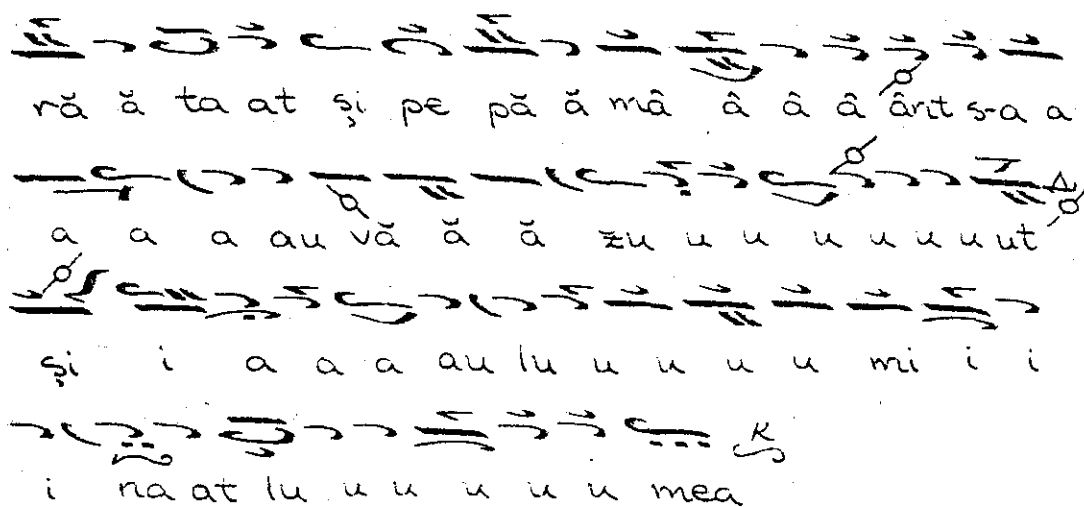 ră ă ta at și pe pă ă mâ â â â ârit s-a a
a a a au vă ă ă zu u u u u u u ut
și i a a a au lu u u u u mi i i
i na at lu u u u u u mea